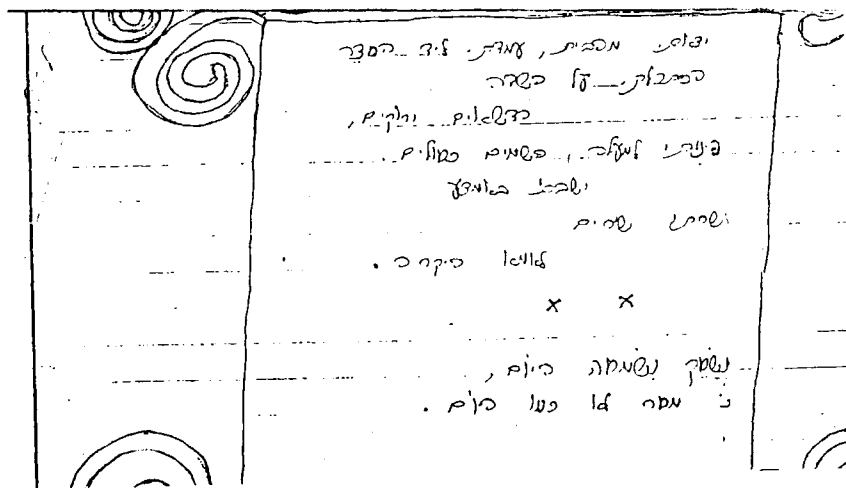 יצאתי מהבית, עמדתי ליד הסדר
הסתכלתי על השדה
הדשאים ירוקים,
פניתי למעלה, השמים כחולים.
ישבתי באמצע
ושרתי שירים
לאמא היקרה.
x x
נשחק נשמחה היום,
כי מחר לא כמו היום.